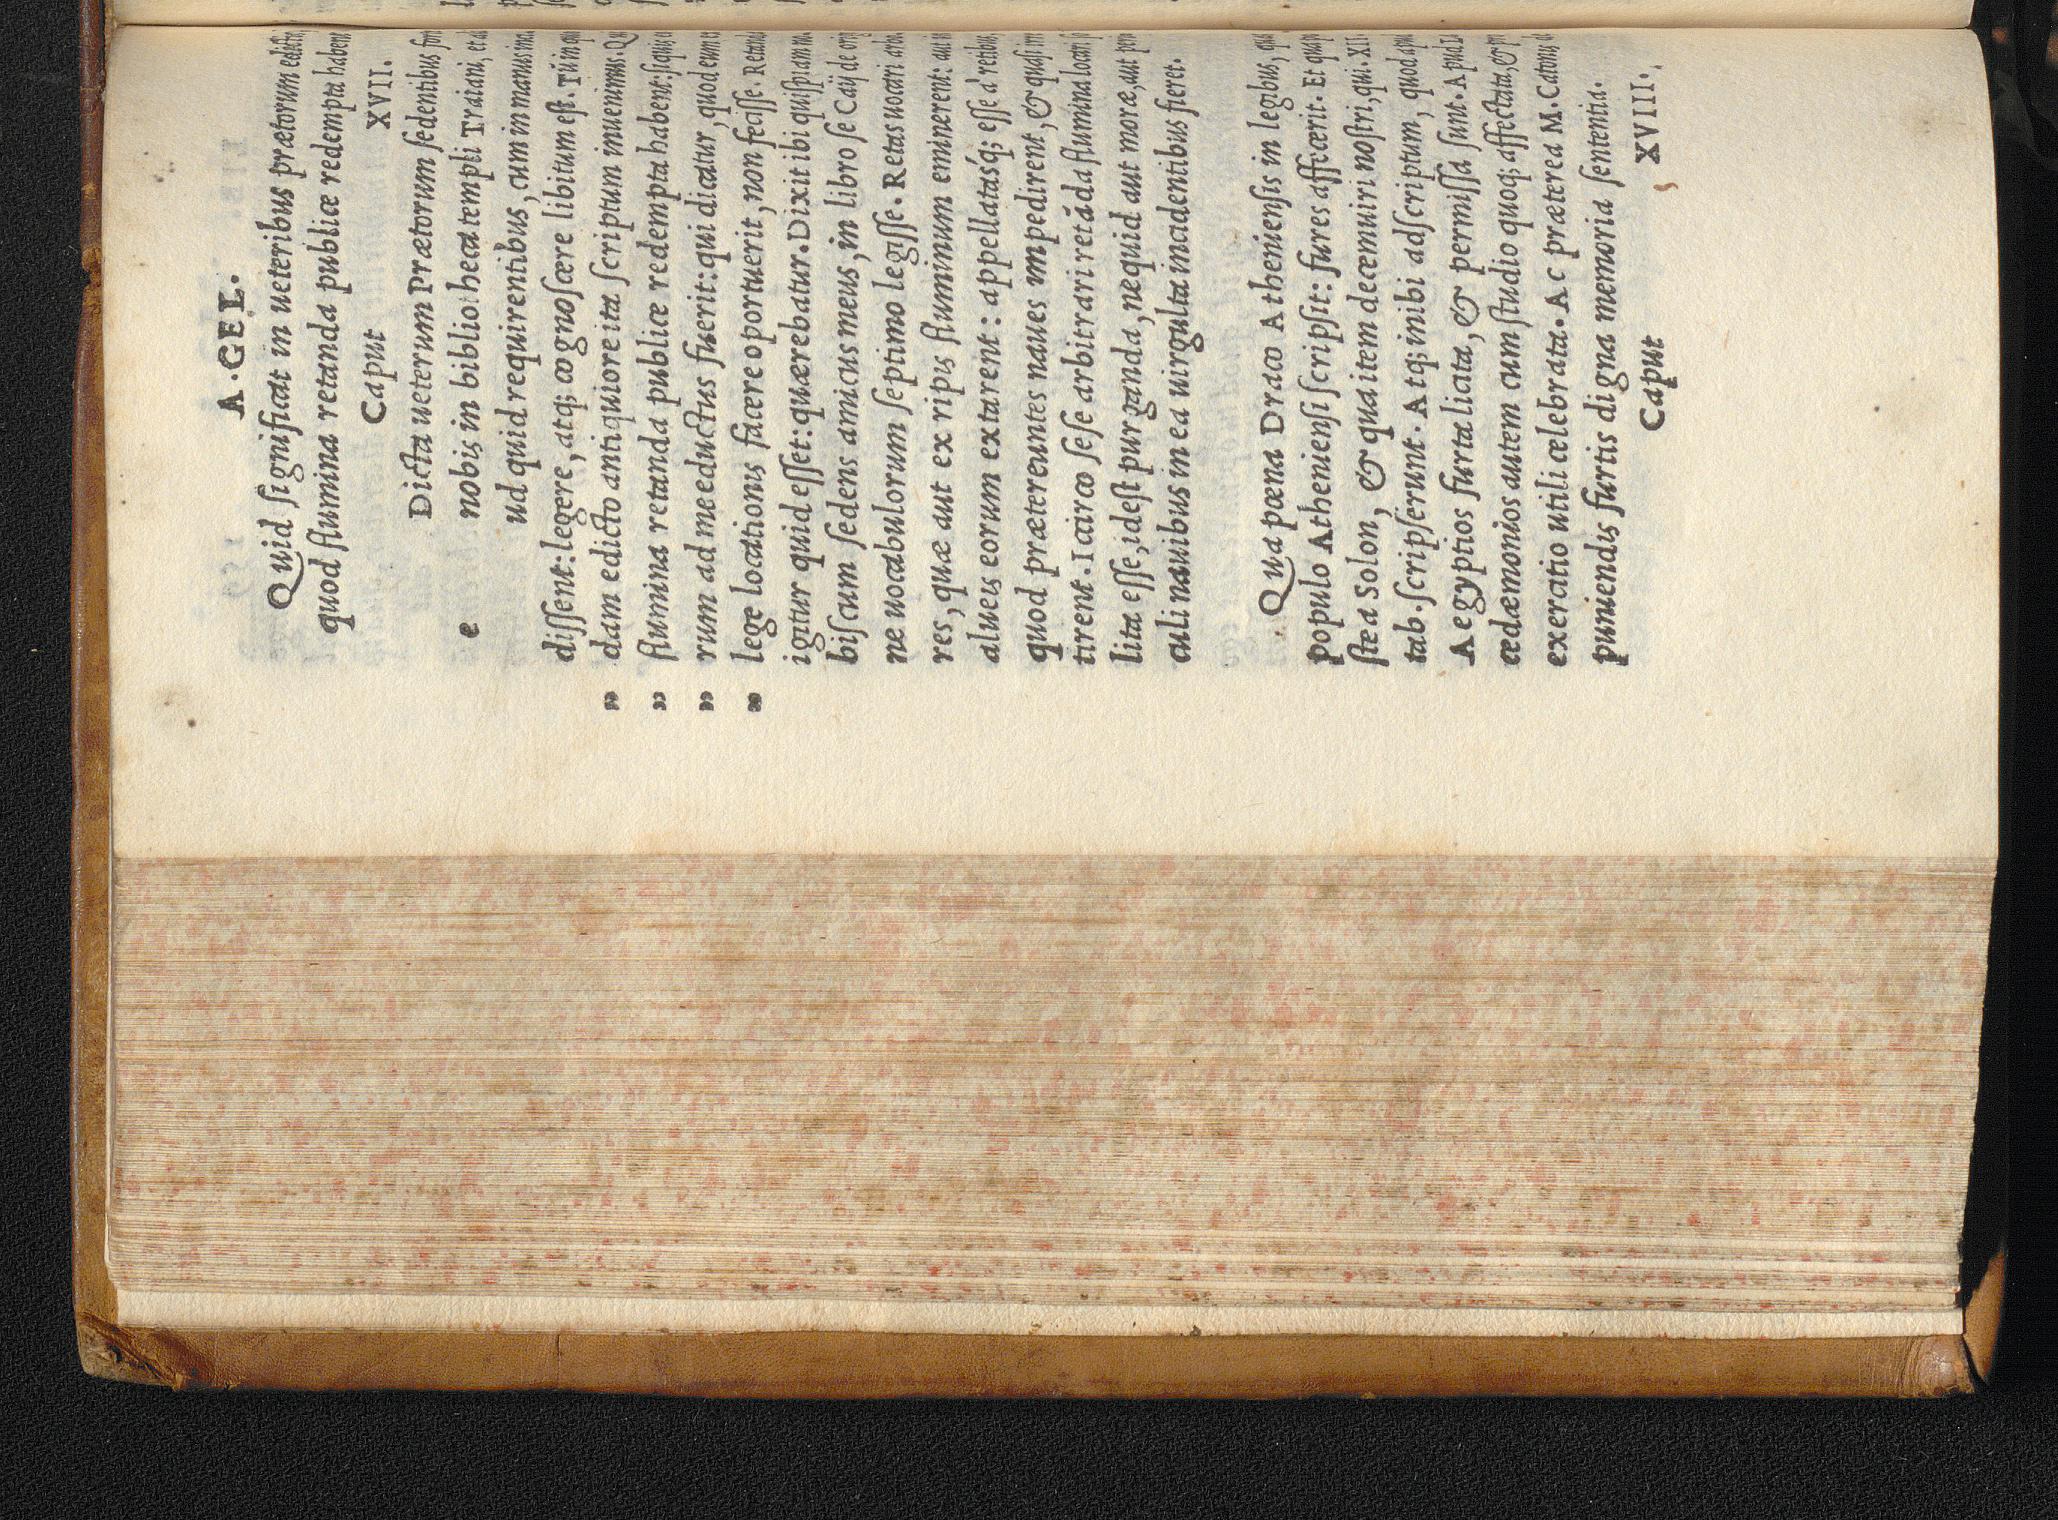 A. GEL.
Quid significat in ueteribus prætorum edictis,
quod flumina retanda publicæ redempta habent
Caput XVII.
e
Dicta ueterum Prætorum sedentibus
nobis in bibliotheca templi Traiani, et
ud quid requirentibus, cum in manus
dissent: legere, atq; cognoscere libitum est. Tū in
„ dam edicto antiquiore ita scriptum inuenimus. Qui
„ flumina retanda publicæ redempta habent: si quis
„ rum ad me eductus fuerit: qui dicatur, quod eum
„ lege locationis facere oportuerit, non fecisse. Retanda
igitur quid esset: quærebatur. Dixit ibi quispiam
biscum sedens amicus meus, in libro se Caij de
ne uocabulorum septimo legisse. Retas uocari
res, quæ aut ex ripis fluminum eminerent: aut in
alueis eorum extarent: appellatásq; esse à retibus,
quod prætereuntes naues impedirent, & quasi
tirent. Icirco sese arbitrari retāda flumina locari
lita esse, idest purganda, nequid aut moræ, aut
culi nauibus in ea uirgulta incidentibus fieret.
Qua pœna Draco Atheniensis in legibus, quas
populo Atheniensi scripsit: fures affecerit. Et qua
stea Solon, & qua item decemuiri nostri, qui. XII.
tab. scripserunt. Atq; inibi adscriptum, quod apud
Aegyptios furta licita, & permissa sunt. Apud
cedæmonios autem cum studio quoq; affectata, &
exercatio utili celebrata. Ac præterea M. Catonis
puniendis furtis digna memoria sententia.
Caput XVIII.